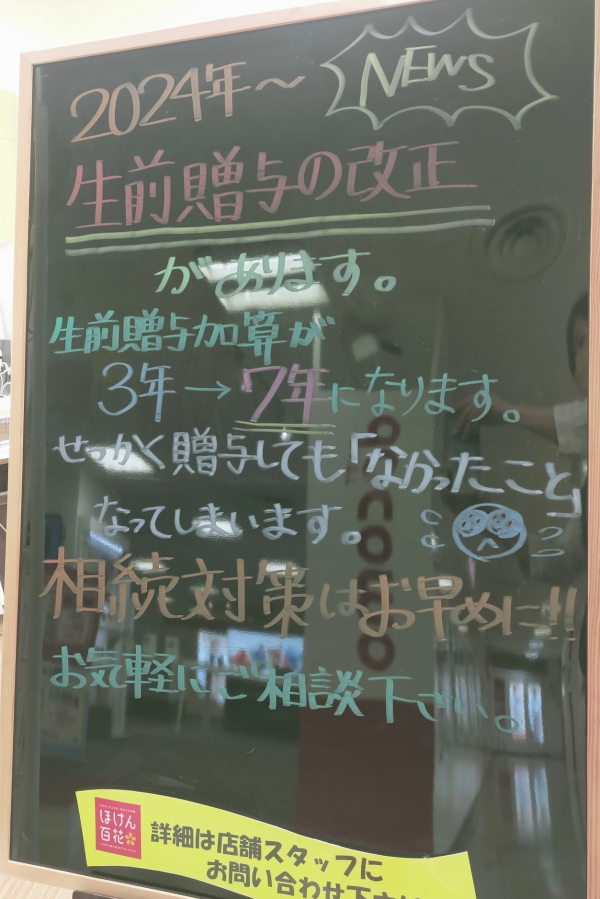 2024年〜
NEWS
生前贈与の改正
があります。
生前贈与加算が
3年→7年になります。
せっかく贈与しても「なかったこと」
なってしまいます。
相続対策はお早めに!!
お気軽にご相談下さい。
ほけん
百花
詳細は店舗スタッフに
お問い合わせ下さい